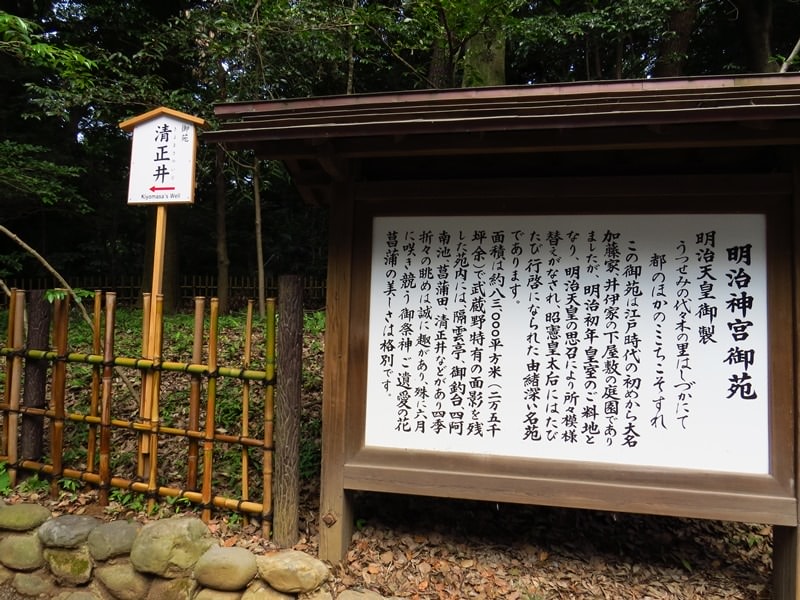 御苑
清正井
Kiyomasa's Well
明治神宮御苑
明治天皇御製
うつせみの代々木の里はしづかにて
都のほかのここちこそすれ
この御苑は江戸時代の初めから大名
加藤家、井伊家の下屋敷の庭園であり
ましたが、明治初年皇室のご料地と
なり、明治天皇の思召により所々模様
替えがなされ、昭憲皇太后にはたび
たび行啓になられた由緒深い名苑
であります。
面積は約八三、〇〇〇平方米(二万五千
坪余)で武蔵野特有の面影を残
した苑内には、隔雲亭、御釣台、四阿、
南池、菖蒲田、清正井などがあり四季
折々の眺めは誠に趣があり、殊に六月
に咲き競う御祭神ご遺愛の花
菖蒲の美しさは格別です。